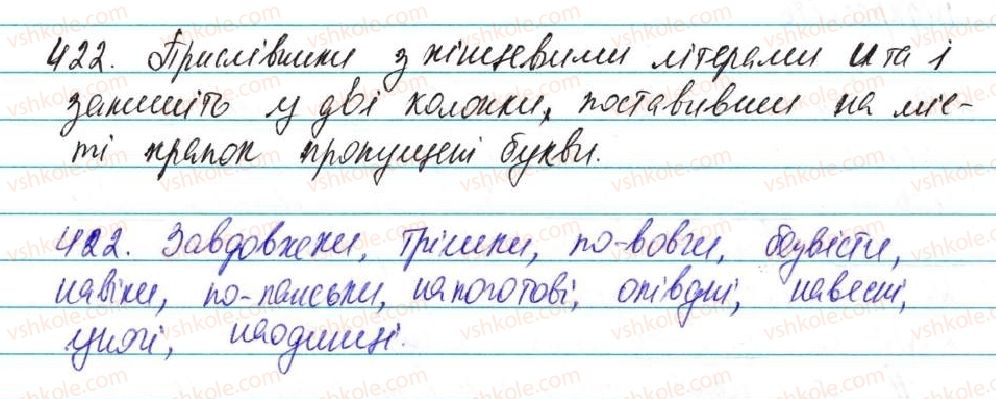 422. Прислівники з кінцевими літерами и та і
запишіть у дві колонки, поставивши на міс-
ті крапок пропущені букви.
422. Завдовжки, трішки, по-вовчи, безвісти,
навіки, по-панськи, напоготові, опівдні, навесні,
уночі, наодинці.